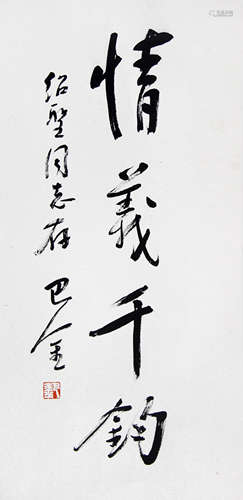 情義千鈞
绍聖同志存
巴金